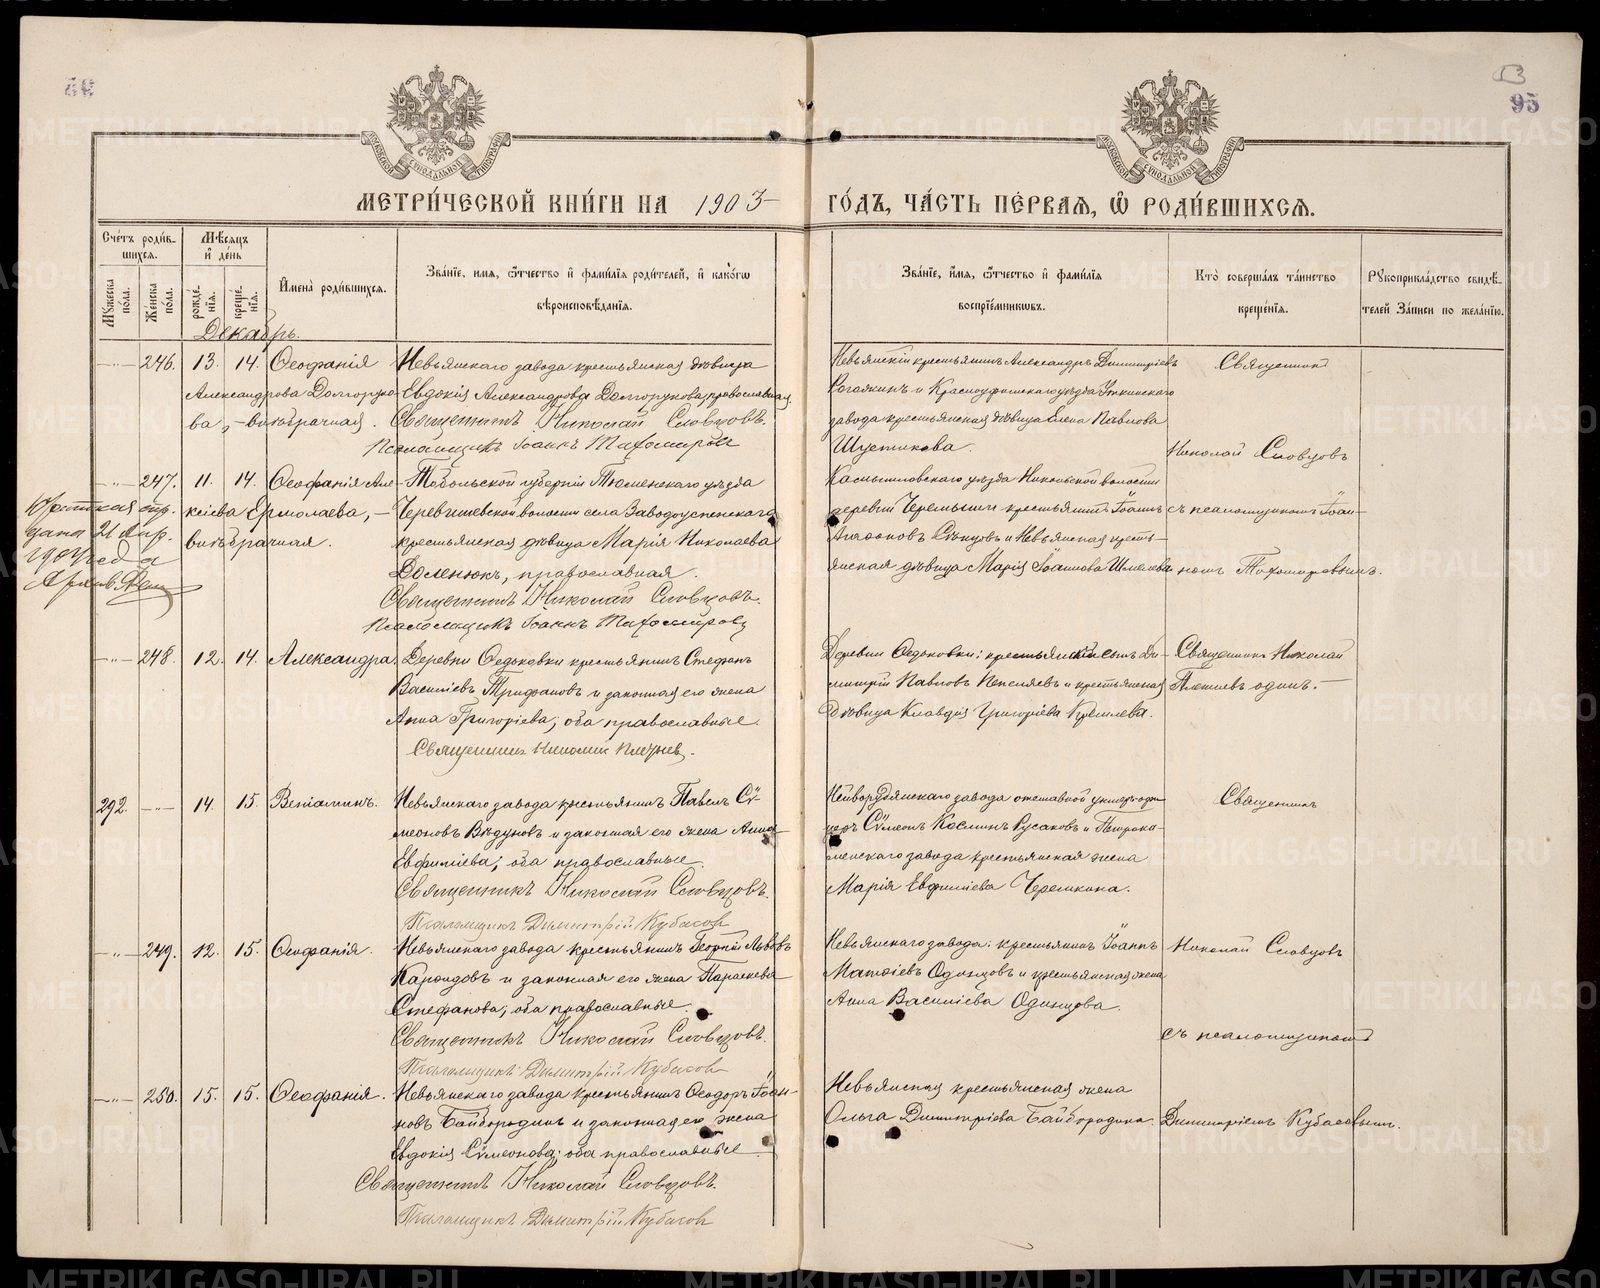 53
95
МЕТРИ́ЧЕСКОЙ КНИ́ГИ НА 1903 ГО́ДЪ, ЧА́СТЬ ПЕ́РВАѦ, Ѽ РОДИ́ВШИХСѦ.
Сче́тъ роди́в-
шихсѧ.
Мꙋжеска по́ла.
Же́нска по́ла.
Мѣ́сяцъ
и҆ де́нь
рожде-
нїѧ.
креще-
нїѧ.
И҆мена̀ роди́вшихсѧ.
Зва́нїе, имѧ, ѻ҆́тчество и҆ фами́лїѧ роди́телей, и҆ како́гѡ
вѣроисповѣ́данїѧ.
Зва́нїе, и҆́мѧ, ѻ҆́тчество и҆ фами́лїѧ
воспрїе́мниковъ.
Кто̀ соверша́лъ та́инство
креще́нїѧ.
Рꙋкоприкла́дство свидѣ́-
телей За́писи по жела́нїю.
Декабрь.
246. 13. 14. Ѳеофанія
Александрова Долгоруко-
ва, – внѣбрачная.
Невьянскаго завода крестьянская дѣвица
Евдокія Александрова Долгорукова, православная.
Священникъ Николай Словцовъ.
Псаломщикъ Іоаннъ Тихомировъ
Невьянскій крестьянинъ Александръ Димитріевъ
Рогожинъ и Красноуфимскаго уѣзда Уткинскаго
завода крестьянская дѣвица Елена Павлова
Шустикова.
Священникъ
Николай Словцовъ
247. 11. 14. Ѳеофанія Але-
ксіева Ермолаева, –
внѣбрачная.
Тобольской губерніи Тюменскаго уѣзда
Черевишевской волости села Заводоуспенскаго
крестьянская дѣвица Марія Николаева
Доленюкъ, православная.
Священникъ Николай Словцовъ.
Псаломщикъ Іоаннъ Тихомировъ
Камышловскаго уѣзда Никольской волости
деревни Черемыши крестьянинъ Іоаннъ
Агафоновъ и Невьянская кресть-
янская дѣвица Марія Іоаннова
съ псаломщикомъ Іоан-
номъ Тихомировымъ.
248. 12. 14. Александра.
Деревни Ѳедьковки крестьянинъ Стефанъ
Василіевъ Трифановъ и законная его жена
Анна Григоріева; оба православные.
Священникъ Николай
Деревни Ѳедьковки: крестьянскій сынъ Ди-
митрій Павловъ и крестьянская
дѣвица Клавдія Григоріева
Священникъ Николай
одинъ. –
292. 14. 15. Веніаминъ.
Невьянскаго завода крестьянинъ Павелъ Сѵ-
меоновъ Вѣдуновъ и законная его жена Анна
Евфиміева; оба православные.
Священникъ Николай Словцовъ.
Псаломщикъ Димитрій Кубасовъ
Нейворудянскаго завода отставной унтеръ-офи-
церъ Сѵмеонъ Косминъ Русаковъ и Петрока-
менскаго завода крестьянская жена
Марія Евфиміева Черемкина.
Священникъ
249. 12. 15. Ѳеофанія.
Невьянскаго завода крестьянинъ Георгій Львовъ
и законная его жена Параскева
Стефанова; оба православные.
Священникъ Николай Словцовъ.
Псаломщикъ Димитрій Кубасовъ
Невьянскаго завода: крестьянинъ Іоаннъ
Матѳіевъ Одинцовъ и крестьянская жена
Анна Василіева Одинцова.
Николай Словцовъ
съ псаломщикомъ
250. 15. 15. Ѳеофанія.
Невьянскаго завода крестьянинъ Ѳеодоръ Іоан-
новъ Байбородинъ и законная его жена
Евдокія Сѵмеонова; оба православные.
Священникъ Николай Словцовъ.
Псаломщикъ Димитрій Кубасовъ
Невьянская крестьянская жена
Ольга Димитріева Байбородина.
Димитріемъ Кубасовымъ.
METRIKI.GASO-URAL.RU